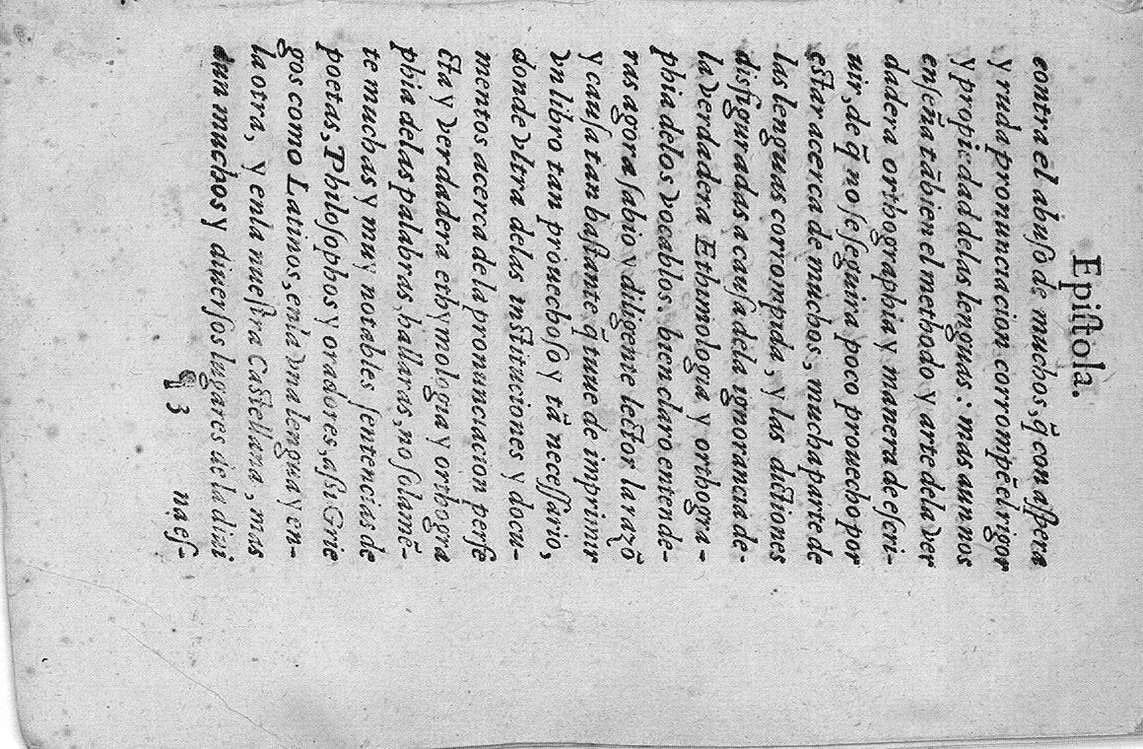 Epiſtola.
contra el abuſo de muchos, q̃ con aſpera
y ruda pronunciacion corrompẽ el rigor
y propiedad de las lenguas: mas aun nos
enſeña tãbien el methodo y arte dela ver
dadera orthographia y manera de eſcri-
uir, de q̃ no ſe ſeguira poco prouecho por
eſtar acerca de muchos, mucha parte de
las lenguas corrompida, y las dictiones
disfiguradas a cauſa dela ignorancia de-
la verdadera Ethimologia y orthogra-
phia delos vocablos. bien claro entende-
ras agora ſabio y diligente lector la razõ
y cauſa tan baſtante q̃ tuue de imprimir
vn libro tan prouechoſo y tã neceſſario,
donde vltra delas inſtituciones y docu-
mentos acerca de la pronunciacion perfe
cta y verdadera ethymologia y orthogra
phia delas palabras, hallaras, no ſolamẽ-
te muchas y muy notables ſentencias de
poetas, Philoſophos y oradores, aſsi Grie
gos como Latinos, enla vna lengua y en-
la otra, y enla nueſtra Caſtellana, mas
aun muchos y diuerſos lugares de la diui
¶ 3 na eſ-